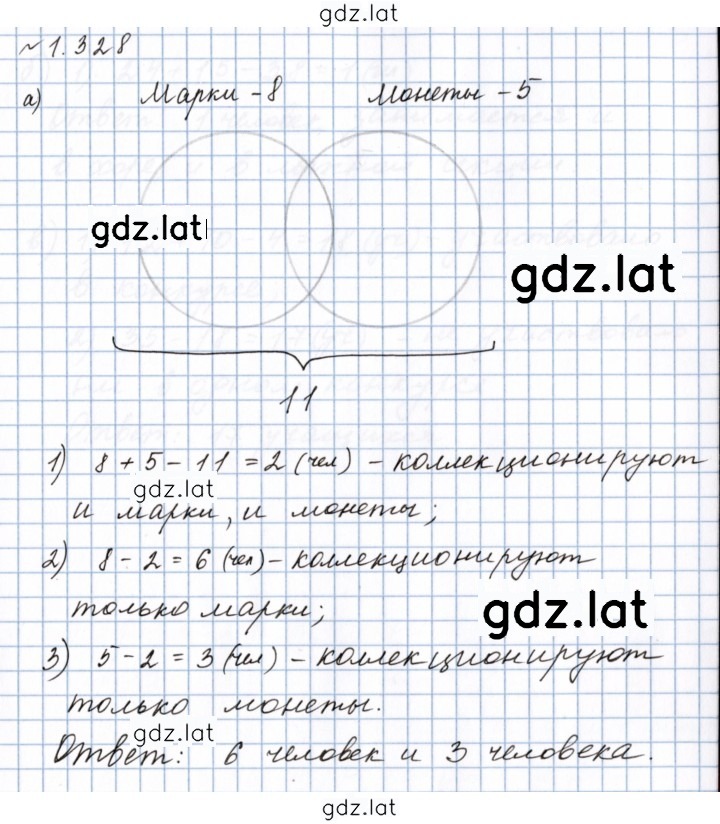 gdz.lat
№ 1.328
а) Марки - 8 Монеты - 5
gdz.lat
gdz.lat
11
1) 8 + 5 - 11 = 2 (чел) - коллекционируют
gdz.lat
и марки, и монеты;
2) 8 - 2 = 6 (чел) - коллекционируют
только марки;
gdz.lat
3) 5 - 2 = 3 (чел) - коллекционируют
только монеты.
gdz.lat
Ответ: 6 человек и 3 человека.
gdz.lat